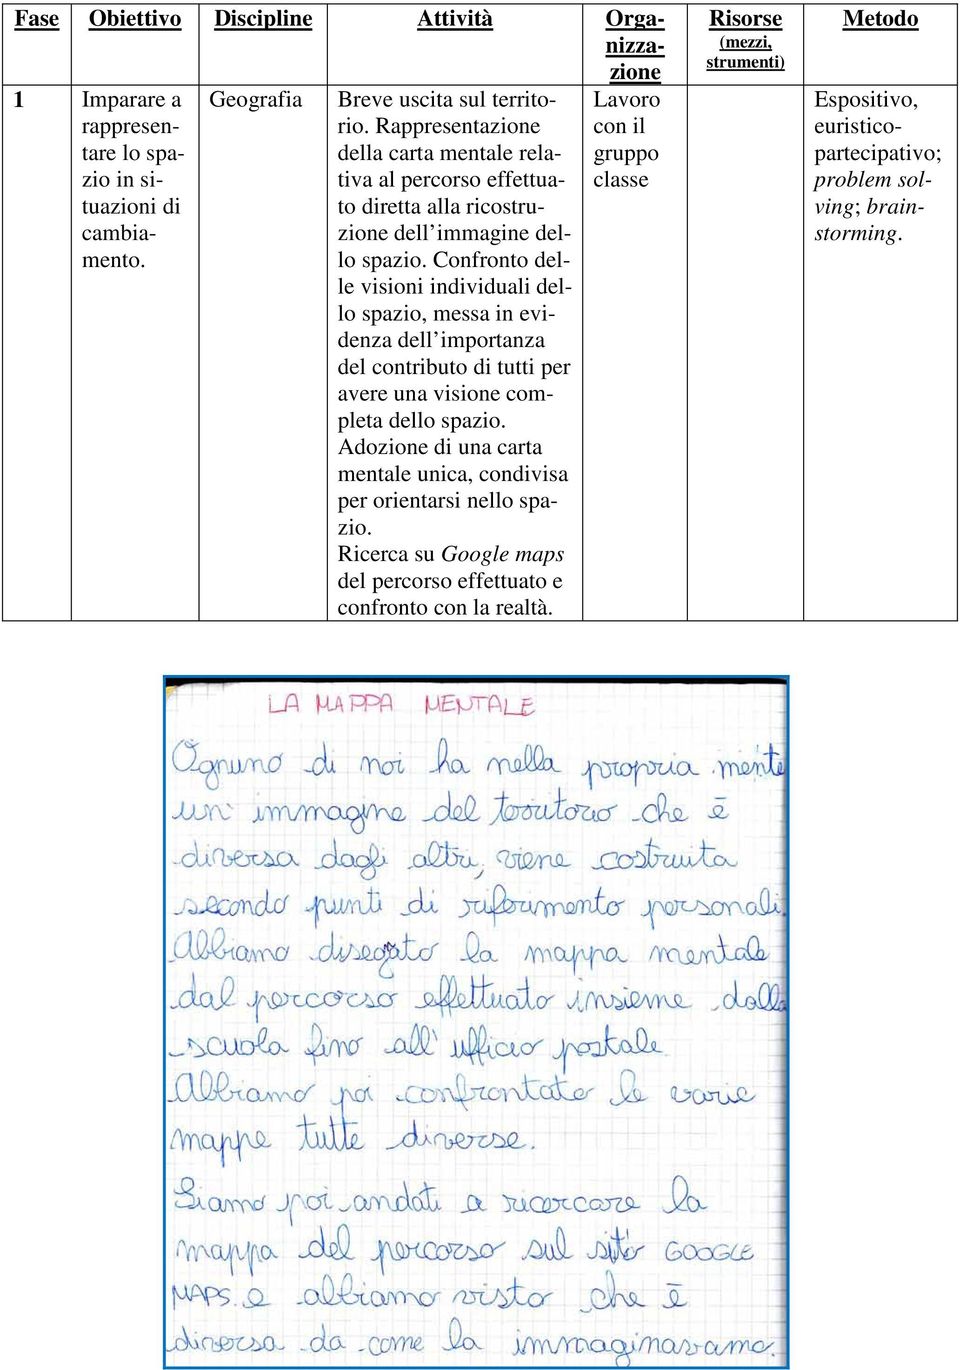 Fase Obiettivo Discipline Attività Orga-
nizza-
zione Risorse
(mezzi,
strumenti) Metodo
1 Imparare a
rappresen-
tare lo spa-
zio in si-
tuazioni di
cambia-
mento.
Geografia
Breve uscita sul territo-
rio. Rappresentazione
della carta mentale rela-
tiva al percorso effettua-
to diretta alla ricostru-
zione dell’immagine del-
lo spazio. Confronto del-
le visioni individuali del-
lo spazio, messa in evi-
denza dell’importanza
del contributo di tutti per
avere una visione com-
pleta dello spazio.
Adozione di una carta
mentale unica, condivisa
per orientarsi nello spa-
zio.
Ricerca su Google maps
del percorso effettuato e
confronto con la realtà.
Lavoro
con il
gruppo
classe
Espositivo,
euristico-
partecipativo;
problem sol-
ving; brain-
storming.
LA MAPPA MENTALE
Ognuno di noi ha nella propria mente
un' immagine del territorio che è
diversa dagli altri, viene costruita
secondo punti di riferimento personali.
Abbiamo disegato la mappa mentale
dal percorso effettuato insieme dalla
scuola fino all' ufficio postale.
Abbiamo poi confrontato le varie
mappe tutte diverse.
Siamo poi andati a ricercare la
mappa del percorso sul sito GOOGLE
MAPS e abbiamo visto che è
diversa da come la immaginavamo.